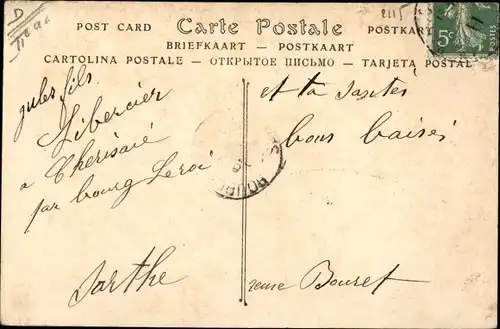 D
POST CARD Carte Postale POSTKARTE
BRIEFKAART — POSTKAART
CARTOLINA POSTALE — ОТКРЫТОЕ ПИСЬМО — TARJETA POSTAL
5c
POSTES
jules fils
Libercier
a Cherisaié
par bourg Leroi
Sarthe
et ta santés
bons baisés
Bouret